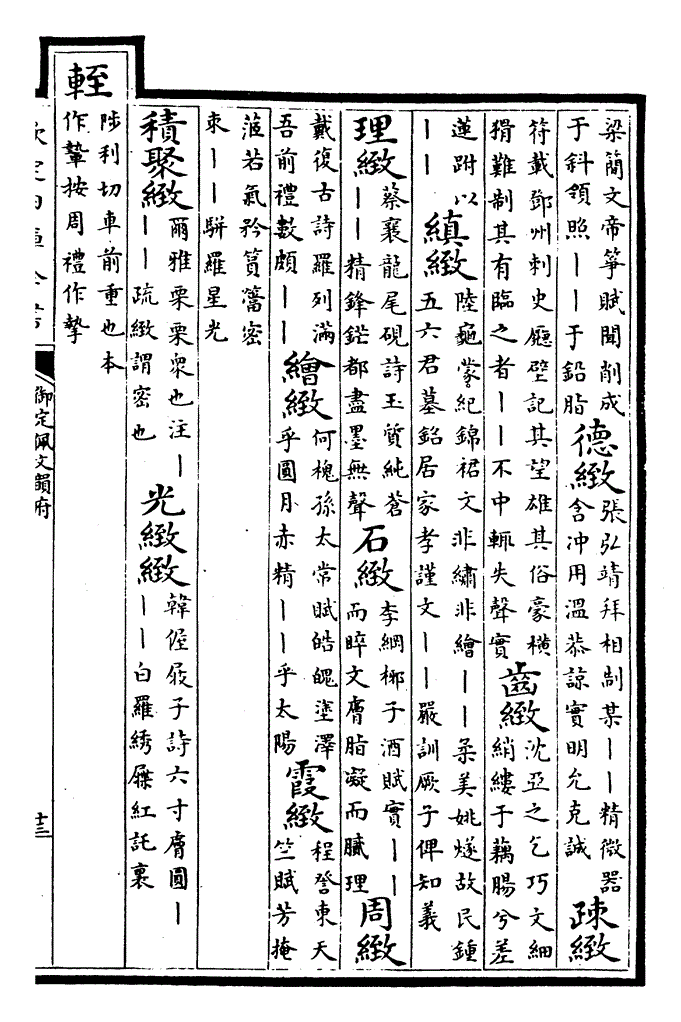 梁簡文帝箏賦聞削成
于斜領照丨丨于鉛脂
德緻
張弘靖拜相制某丨丨精微器
含冲用溫恭諒實明允克誠
疎緻
符載鄧州刺史廳壁記其望雄其俗豪橫
猾難制其有臨之者丨丨不中輒失聲實
齒緻
沈亞之乞巧文細
綃縷于藕腸兮差
蓮跗以
丨丨
縝緻
陸龜蒙紀錦裙文非繡非繪丨丨柔美姚燧故民鍾
五六君墓銘居家孝謹文丨丨嚴訓厥子俾知義
理緻
蔡襄龍尾硯詩玉質純蒼
丨丨精鋒鋩都盡墨無聲
石緻
李綱椰子酒賦實丨丨
而晬文膚脂凝而膩理
周緻
戴復古詩羅列滿
吾前禮數頗丨丨
繪緻
何槐孫太常賦皓魄塗澤
乎圓月赤精丨丨乎太陽
霞緻
程詧東天
竺賦芳掩
蒞若氣矜筼簹密
朿丨丨駢羅星光
積聚緻
爾雅栗栗衆也注丨
丨丨疏緻謂密也
光緻緻
韓偓屐子詩六寸膚圓丨
丨丨白羅綉屧紅託裏
輊
陟利切車前重也本
作摯按周禮作摯
欽定四庫全書
御定佩文韻府
十三